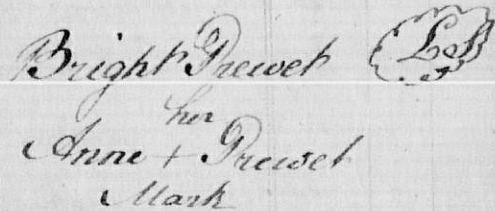 Bright Prewet LS
her
Anne + Prewet
Mark